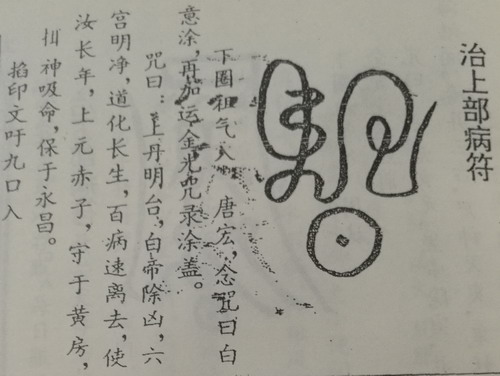 治上部病符
下圈祖气人 唐宏，念咒曰白
意涂，再加运金光咒录涂盖。
咒曰：上丹明台，白帝除凶，六
宫明净，道化长生，百病速离去，使
汝长年，上元赤子，守于黄房，
神吸命，保于永昌。
掐印文吁九口入